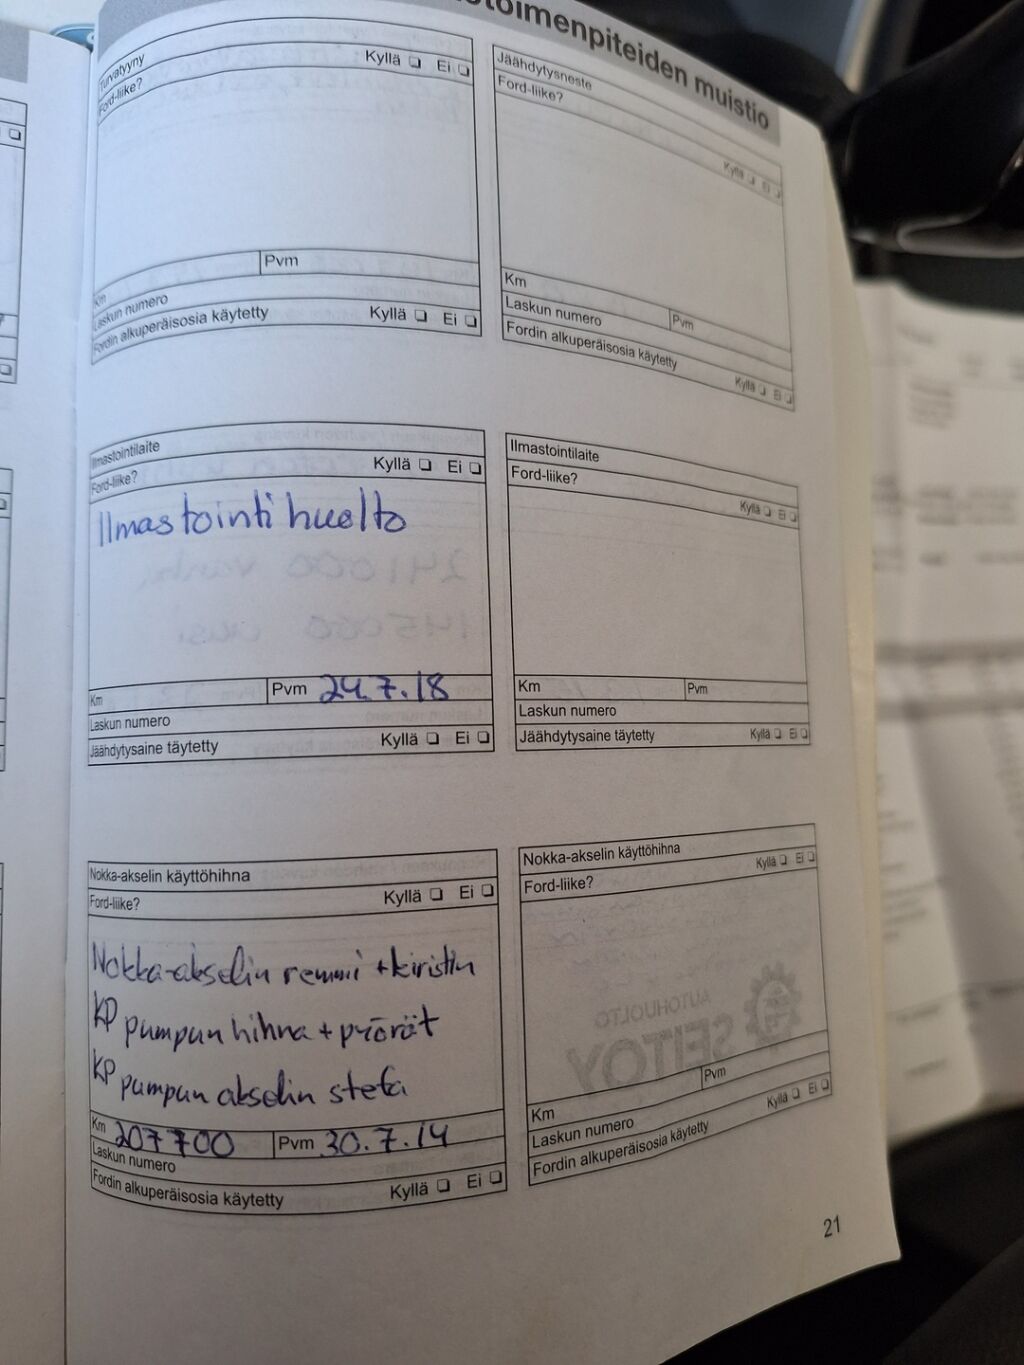 toimenpiteiden muistio
Turvatyyny
Ford-liike? Kyllä ❏ Ei ❏
Km Pvm
Laskun numero
Fordin alkuperäisosia käytetty Kyllä ❏ Ei ❏
Jäähdytysneste
Ford-liike?
Kyllä ❏ Ei ❏
Km
Laskun numero Pvm
Fordin alkuperäisosia käytetty
Kyllä ❏ Ei ❏
Ilmastointilaite
Ford-liike? Kyllä ❏ Ei ❏
Ilmastointi huolto
Km Pvm 24.7.18
Laskun numero
Jäähdytysaine täytetty Kyllä ❏ Ei ❏
Ilmastointilaite
Ford-liike?
Kyllä ❏ Ei ❏
Km Pvm
Laskun numero
Jäähdytysaine täytetty Kyllä ❏ Ei ❏
Nokka-akselin käyttöhihna
Ford-liike? Kyllä ❏ Ei ❏
Nokka-akselin remmi + kiristin
KP pumpun hihna + pyörät
KP pumpun akselin stefa
Km 207700 Pvm 30.7.14
Laskun numero
Fordin alkuperäisosia käytetty Kyllä ❏ Ei ❏
Nokka-akselin käyttöhihna
Ford-liike? Kyllä ❏ Ei ❏
AUTOHUOLTO
SEITOY
Km Pvm
Laskun numero
Fordin alkuperäisosia käytetty Kyllä ❏ Ei ❏
21